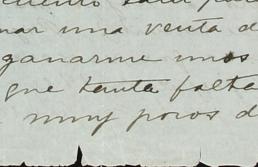 cuento
nar una venta d
ganarme unos
que tanta falta
muy pocos d